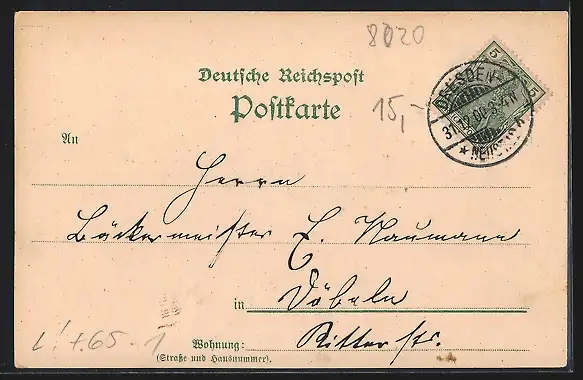 8020
Deutsche Reichspost
Postkarte
15,-
5
5
DRESDEN-
31.12.00.3-4N
* NEUSTADT
An
Herrn
Bäckermeister E. Naumann
in Döbeln
Wohnung: Ritterstr.
(Straße und Hausnummer).